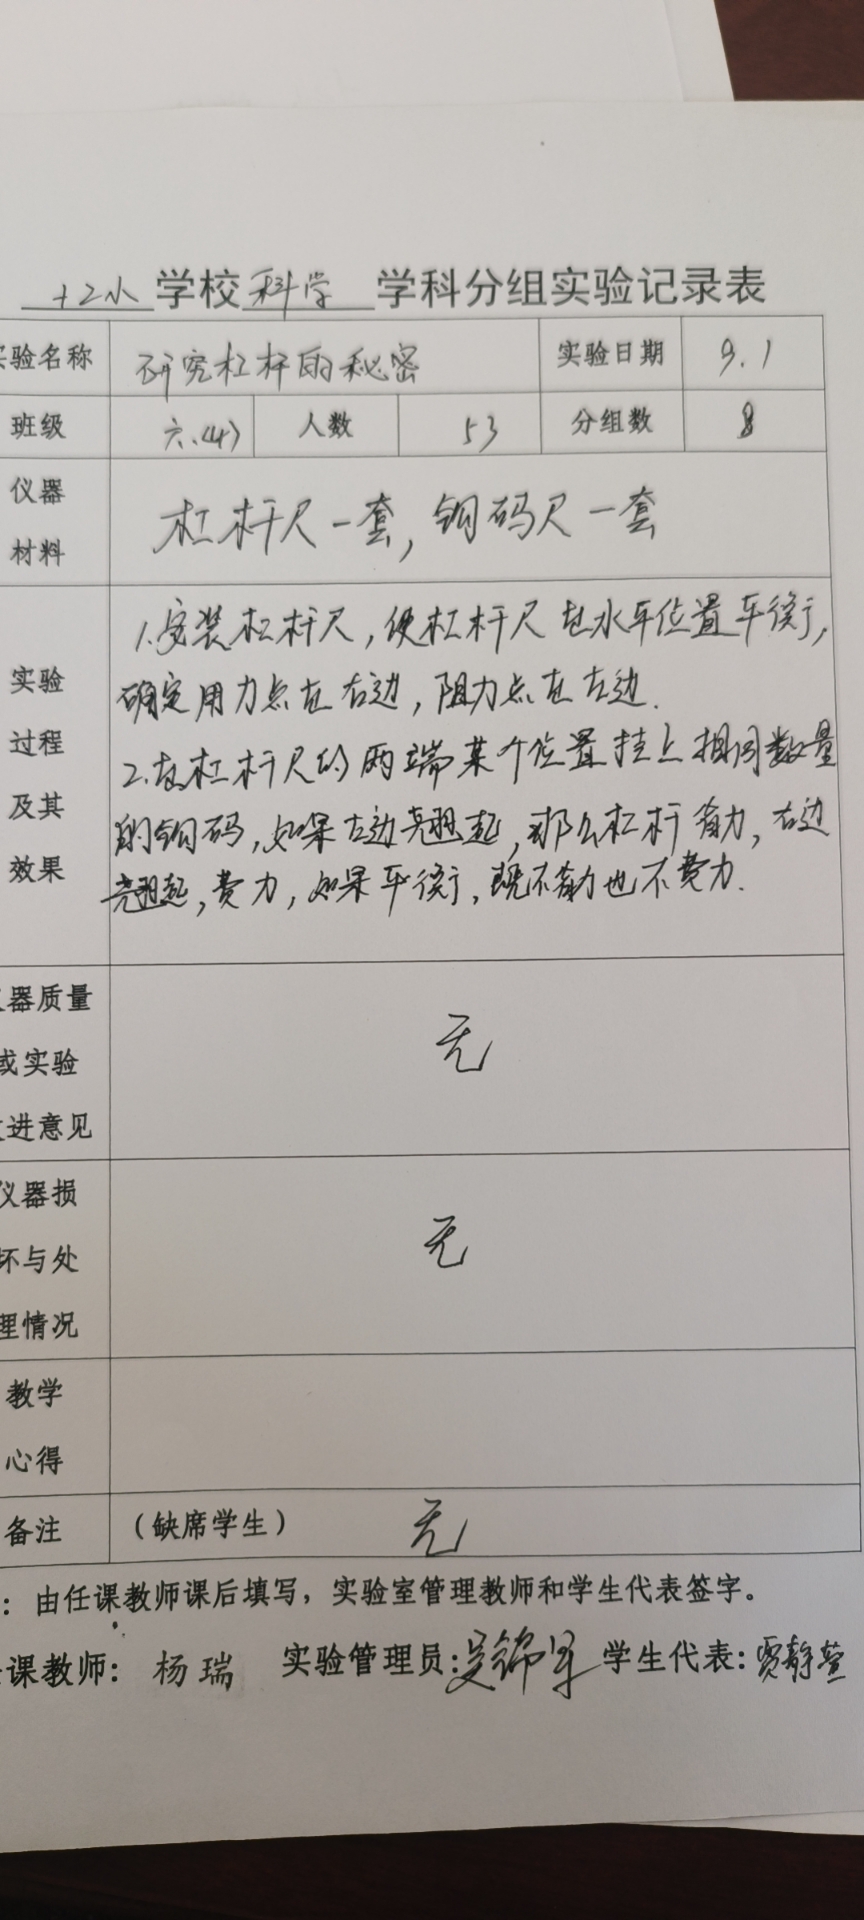 十2小 学校 科学 学科分组实验记录表
验名称 研究杠杆的秘密 实验日期 9.1
班级 六.(4) 人数 53 分组数 8
仪器
材料
杠杆尺一套，钩码尺一套
1.安装杠杆尺，使杠杆尺在水平位置平衡，
确定用力点在右边，阻力点在左边.
2.在杠杆尺的两端某个位置挂上相同数量
的钩码，如果左边翘起，那么杠杆省力，右边
翘起，费力，如果平衡，既不省力也不费力.
实验
过程
及其
效果
器质量
或实验
进意见
无
仪器损
坏与处
理情况
无
教学
心得
备注 （缺席学生） 无
：由任课教师课后填写，实验室管理教师和学生代表签字。
课教师：杨瑞 实验管理员：吴锦军 学生代表：贾静萱